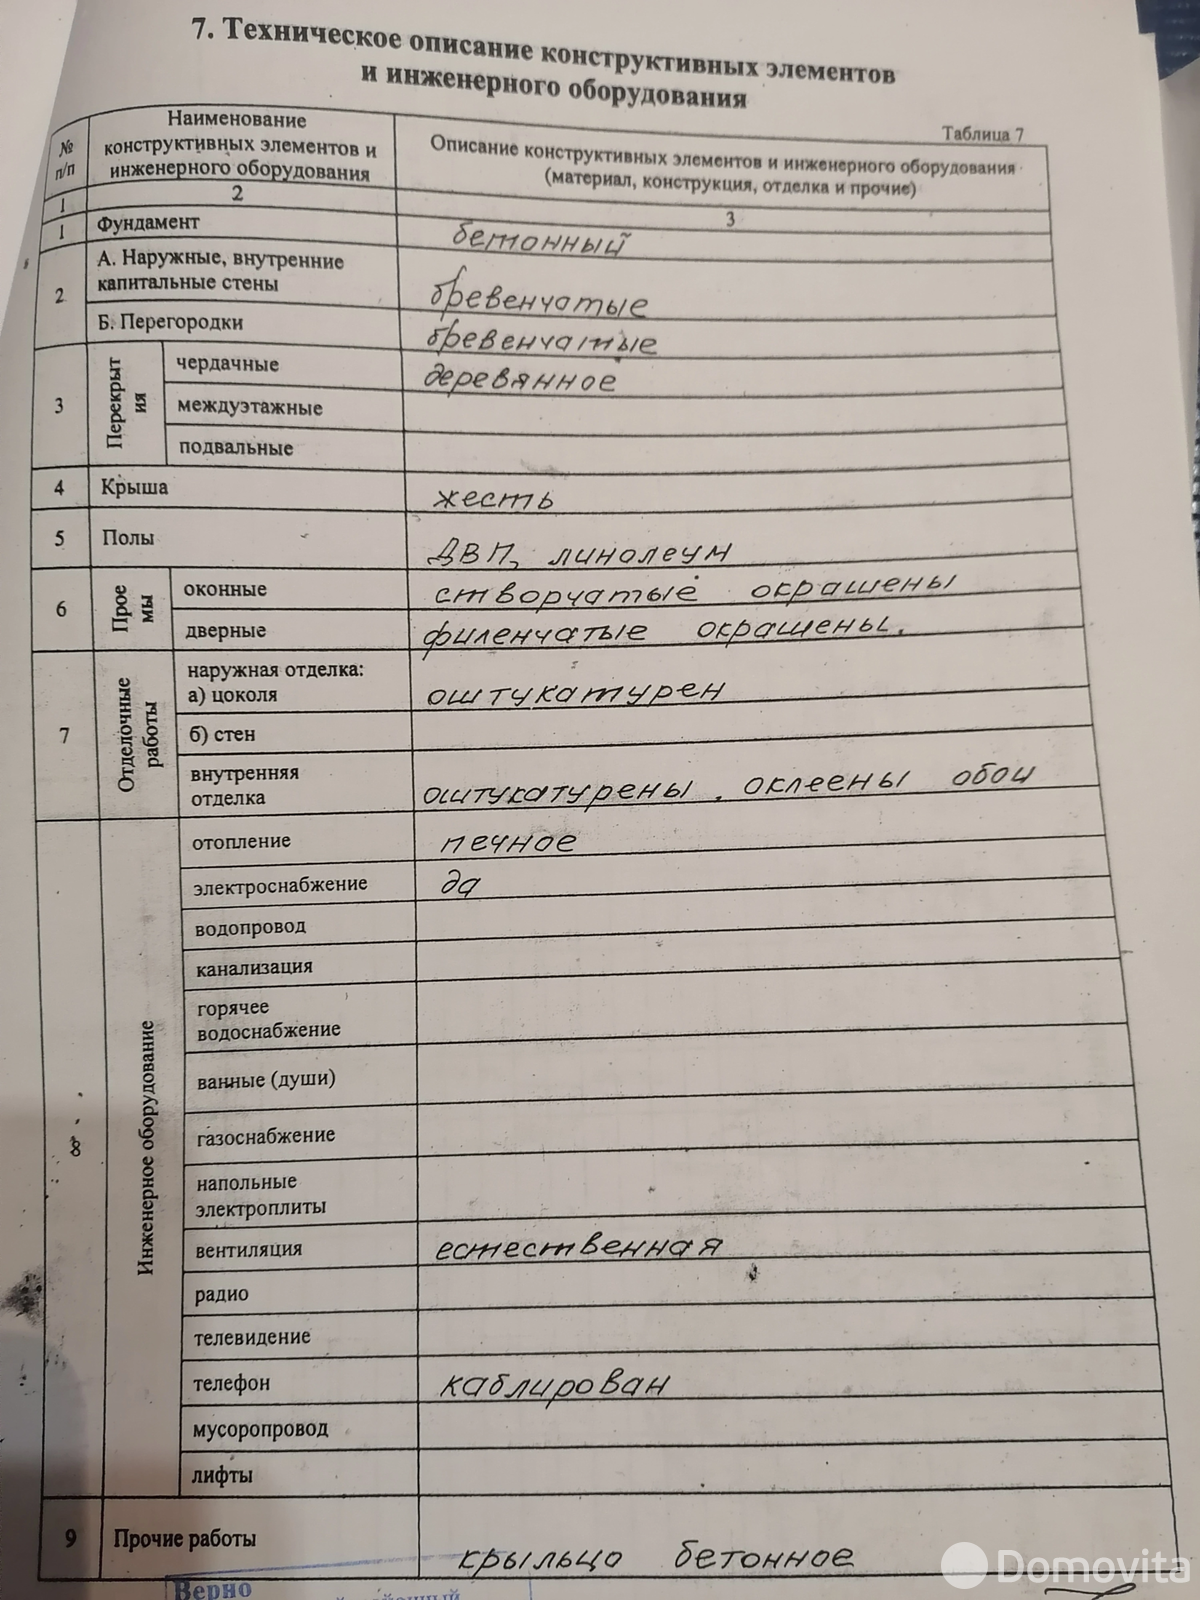 7. Техническое описание конструктивных элементов
и инженерного оборудования
Таблица 7
№
п/п
Наименование
конструктивных элементов и
инженерного оборудования
Описание конструктивных элементов и инженерного оборудования
(материал, конструкция, отделка и прочие)
1
2
3
1
Фундамент
бетонный
2
А. Наружные, внутренние
капитальные стены
бревенчатые
Б. Перегородки
бревенчатые
3
Перекрыт
ия
чердачные
деревянное
междуэтажные
подвальные
4
Крыша
жесть
5
Полы
ДВП, линолеум
6
Прое
мы
оконные
створчатые окрашены
дверные
филенчатые окрашены.
7
Отделочные
работы
наружная отделка:
а) цоколя
оштукатурен
б) стен
внутренняя
отделка
оштукатурены, оклеены обои
8
Инженерное оборудование
отопление
печное
электроснабжение
да
водопровод
канализация
горячее
водоснабжение
ванные (души)
газоснабжение
напольные
электроплиты
вентиляция
естественная
радио
телевидение
телефон
каблирован
мусоропровод
лифты
9
Прочие работы
крыльцо бетонное
Верно
Domovita